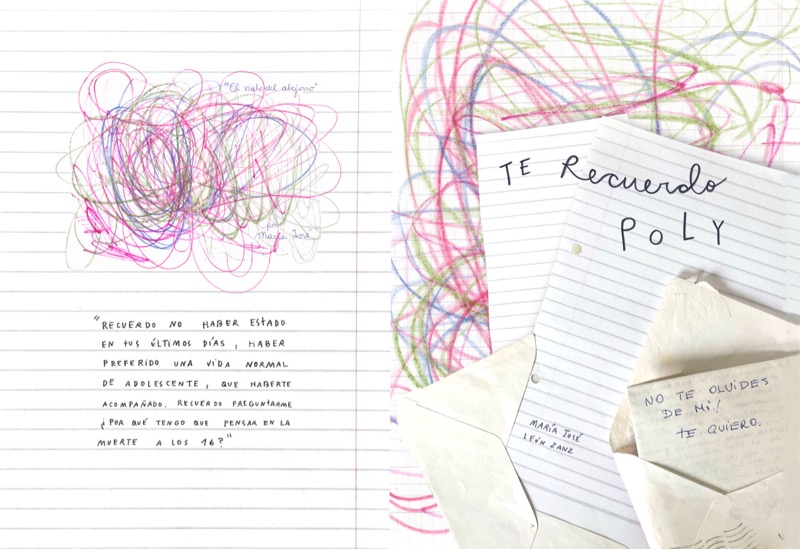 "El nido del abejoso"
por
María José
"RECUERDO NO HABER ESTADO
EN TUS ÚLTIMOS DÍAS, HABER
PREFERIDO UNA VIDA NORMAL
DE ADOLESCENTE, QUE HABERTE
ACOMPAÑADO. RECUERDO PREGUNTARME
¿POR QUÉ TENGO QUE PENSAR EN LA
MUERTE A LOS 16?"
TE Recuerdo
POLY
MARÍA JOSÉ
LEÓN ZANZ
NO TE OLVIDES
DE Mi!
TE QUIERO.